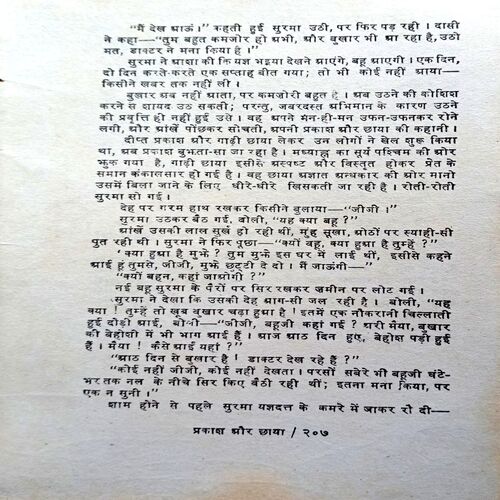 "मैं देख आऊं।" कहती हुई सुरमा उठी, पर फिर पड़ रही। दासी
ने कहा—"तुम बहुत कमजोर हो अभी, और बुखार भी आ रहा है, उठो
मत, डाक्टर ने मना किया है।"
सुरमा ने आशा की कि यज्ञ भइया देखने आएंगे, बहू आएगी। एक दिन,
दो दिन करते-करते एक सप्ताह बीत गया; तो भी कोई नहीं आया—
किसीने खबर तक नहीं ली।
बुखार अब नहीं आता, पर कमजोरी बहुत है। अब उठने की कोशिश
करने से शायद उठ सकती; परन्तु, जबरदस्त अभिमान के कारण उठने
की प्रवृत्ति ही नहीं हुई उसे। वह अपने मन-ही-मन उफन-उफनकर रोने
लगी, और आंखें पोंछकर सोचती, अपनी प्रकाश और छाया की कहानी।
दीप्त प्रकाश और गाढ़ी छाया लेकर उन लोगों ने खेल शुरू किया
था, अब प्रकाश बुझता-सा जा रहा है। मध्याह्न का सूर्य पश्चिम की ओर
झुक गया है, गाढ़ी छाया इसीसे अस्पष्ट और विस्तृत होकर प्रेत के
समान कंकालसार हो गई है। वह छाया अज्ञात अन्धकार की ओर मानो
उसमें बिला जाने के लिए धीरे-धीरे खिसकती जा रही है। रोती-रोती
सुरमा सो गई।
देह पर गरम हाथ रखकर किसीने बुलाया—"जीजी।"
सुरमा उठकर बैठ गई, बोली, "यह क्या बहू?"
आंखें उसकी लाल सुर्ख हो रही थीं, मुंह सूखा, ओठों पर स्याही-सी
पुत रही थी। सुरमा ने फिर पूछा—"क्यों बहू, क्या हुआ है तुम्हें?"
'क्या हुआ है मुझे? तुम मुझे इस घर में लाई थीं, इसीसे कहने
आई हूं तुमसे, जीजी, मुझे छुट्टी दे दो। मैं जाऊंगी—"
"क्यों बहन, कहां जाओगी?"
नई बहू सुरमा के पैरों पर सिर रखकर ज़मीन पर लोट गई।
सुरमा ने देखा कि उसकी देह आग-सी जल रही है। बोली, "यह
क्या! तुम्हें तो खूब बुखार चढ़ा हुआ है! इतमें एक नौकरानी चिल्लाती
हुई दौड़ी आई, बोली—"जीजी, बहूजी कहां गई? अरी मैया, बुखार
की बेहोशी में भी भाग आई हैं। आज आठ दिन हुए, बेहोश पड़ी हुई
हैं। मैया! कैसे आई यहां?"
"आठ दिन से बुखार है! डाक्टर देख रहे हैं?"
"कोई नहीं जीजी, कोई नहीं देखता। परसों सबेरे भी बहूजी घंटे-
भर तक नल के नीचे सिर किए बैठी रही थीं; इतना मना किया, पर
एक न सुनी।"
शाम होने से पहले सुरमा यज्ञदत्त के कमरे में जाकर रो दी—
प्रकाश और छाया / २०७